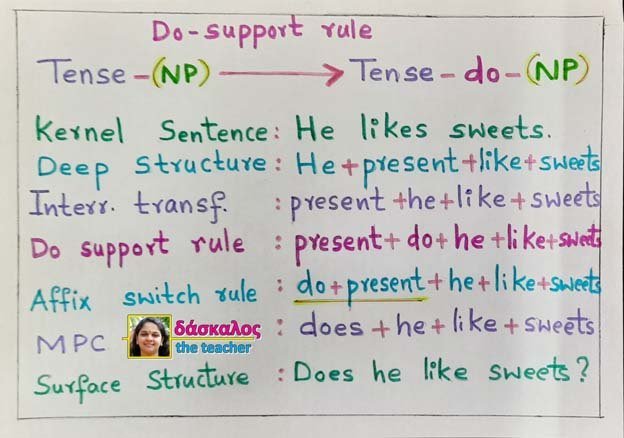 Do-support rule
Tense-(NP) → Tense-do-(NP)
Kernel Sentence: He likes sweets.
Deep Structure: He+present+like+sweets
Interr. transf. : present+he+like+sweets
Do support rule : present+do+he+like+sweets
Affix switch rule : do+present+he+like+sweets
MPC : does+he+like+sweets
δάσκαλος
the teacher
Surface Structure : Does he like sweets?